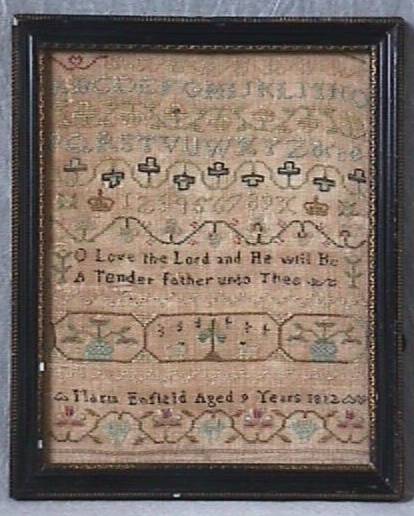 ABCDEFGHIJKLMNO
PQRSTVUWXYZ&
123456789
O Love the Lord and He will Be
A Tender father unto Thee
Maria Enfield Aged 9 Years 1812